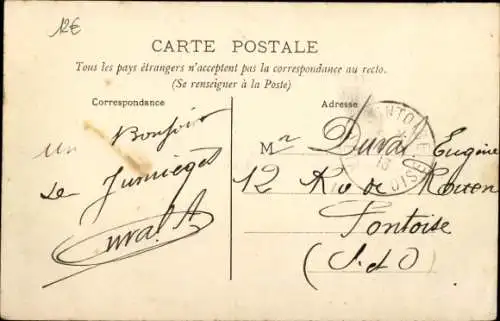 12€
CARTE POSTALE
Tous les pays étrangers n'acceptent pas la correspondance au recto.
(Se renseigner à la Poste)
Correspondance
Adresse
un Bonjour
de Jumièges
Duval A
Mr Duval Eugène
12 Rue de Rouen
Pontoise
(S. et O)
PONTOISE
13